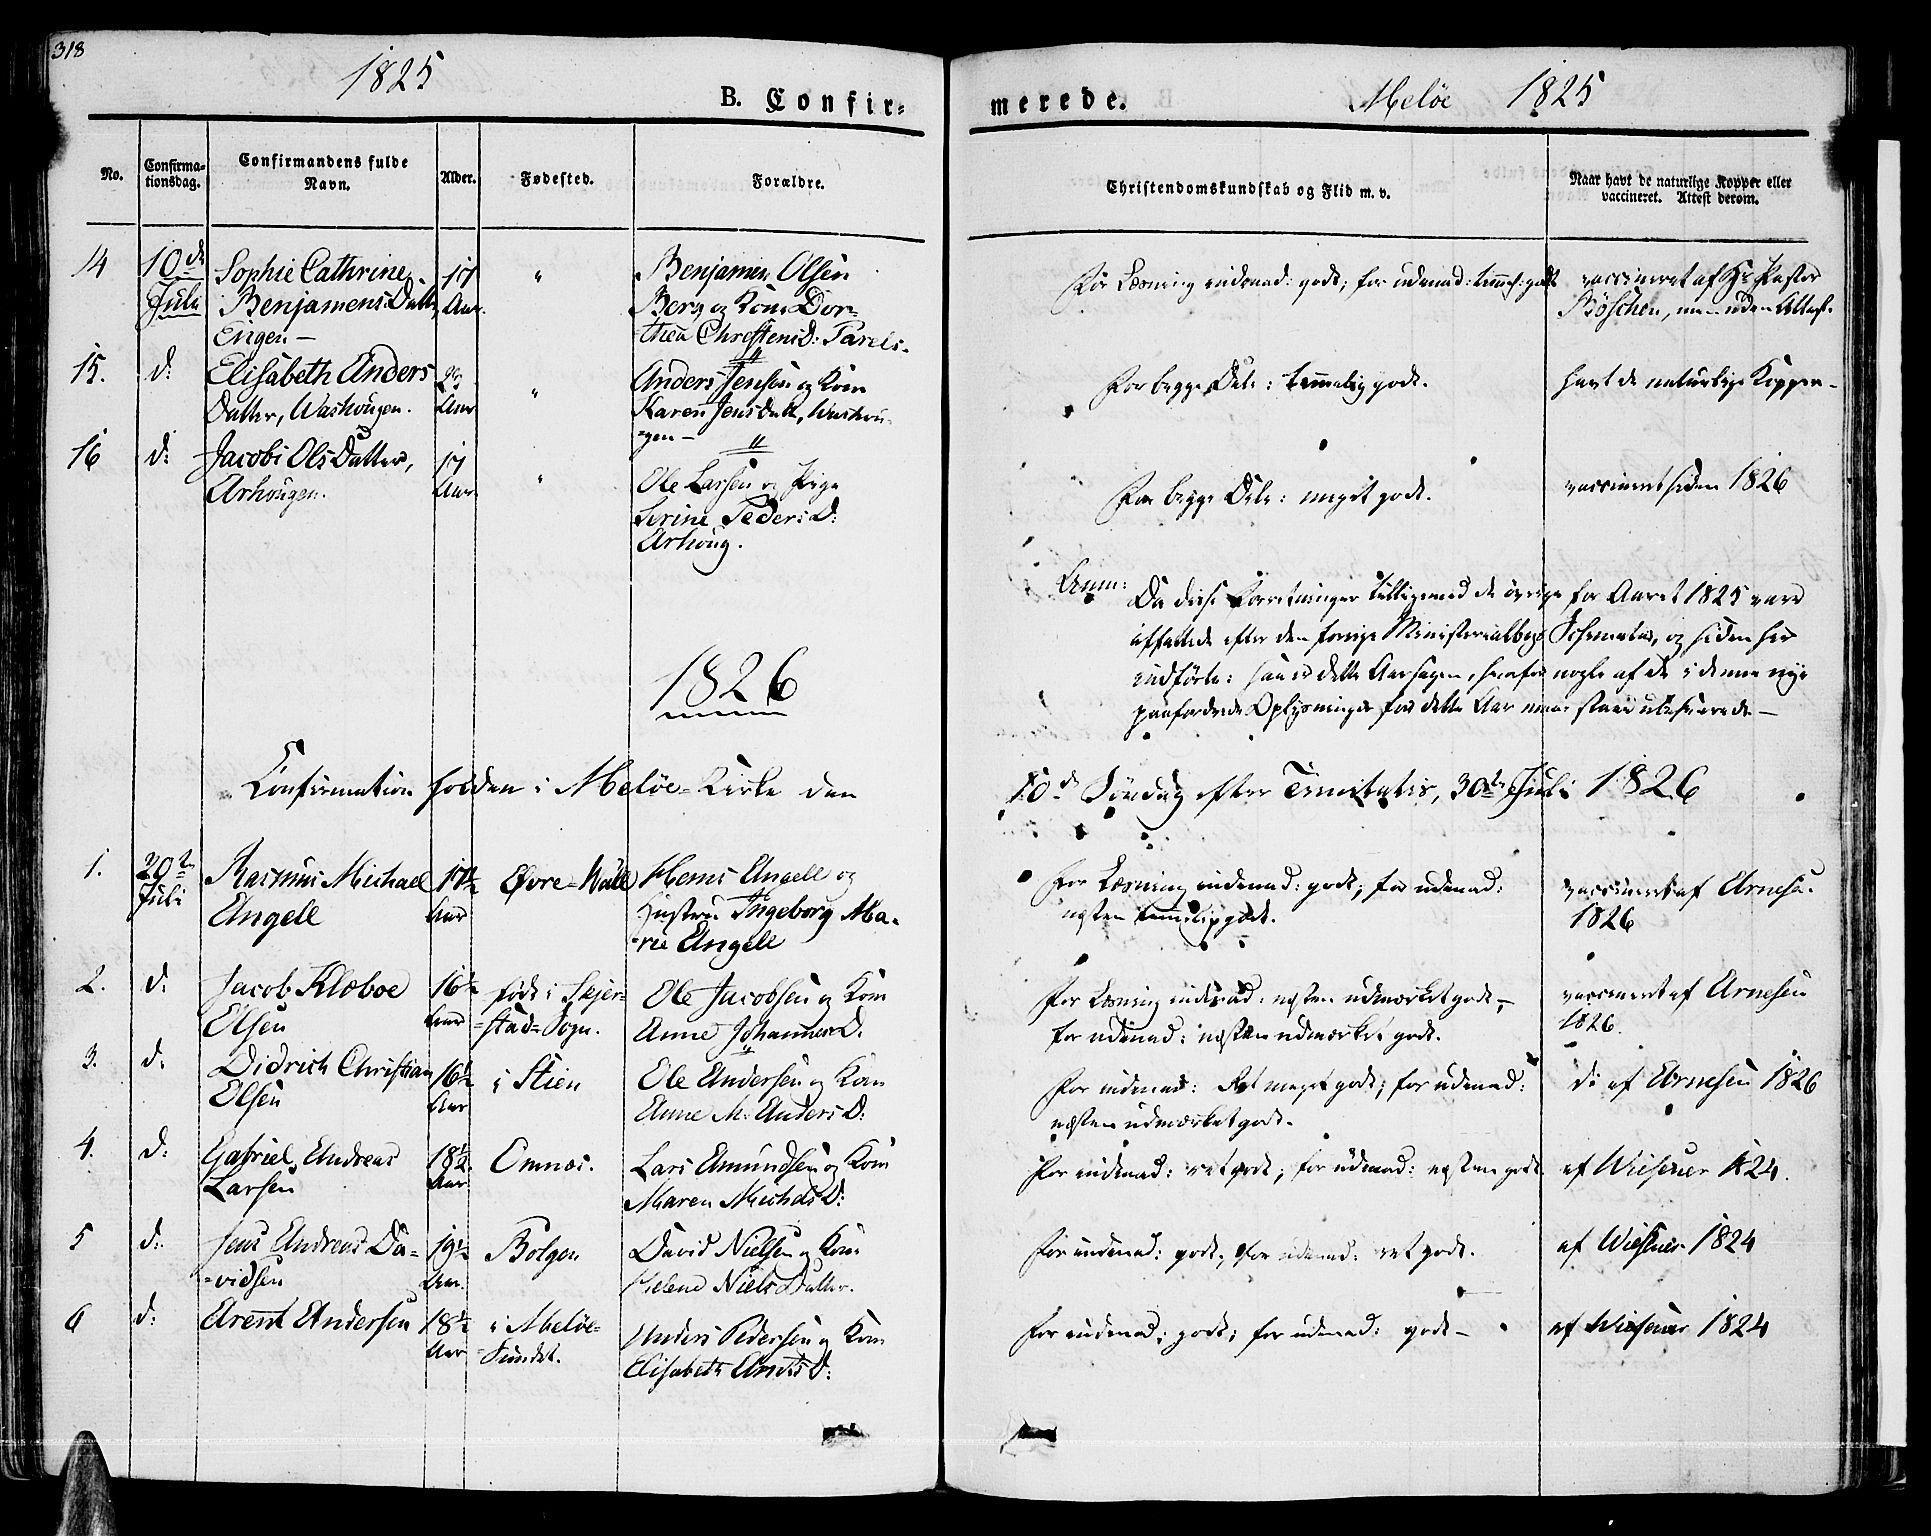 318
1825
B. Confir-
merede.
Meløe 1825
No.
Confirma-
tionsdag.
Confirmandens fulde
Navn.
Alder.
Fødested.
Forældre.
Christendomskundskab og Flid m. v.
Naar havt de naturlige Kopper eller
vaccineret. Attest derom.
14
10de
Juli
Sophie Cathrine
Benjamens Datter
Engen —
17
Aar.
"
Benjamen Olsen
Berg og Kone Dor-
thea Christens D:
For Læsning indenad: godt; for udenad: temmel: godt
vaccineret af Hr Pastor
Böschen, men uden Attest.
15.
d:
Elisabeth Anders
Datter, Washougen.
Aar
"
Anders Jensen og Kone
Karen Jens Datt, Washou-
-gen —
For begge Dele: temmelig godt.
havt de naturlige Kopper —
16
d:
Jacobi Ols Datter,
Arhougen.
17
Aar
"
Ole Larsen og Pige
Serine Peders D:
Arhoug.
For begge Dele: meget godt.
vaccineret siden 1826
Anm:
Da disse Forretninger tilligemed de øvrige for Aaret 1825 vare
affattede efter den forrige Ministerialbogs Schemata, og siden her
indførte: saa er dette Aarsagen, hvorfor nogle af de i denne nye
paafordrede Oplysninger for dette Aar maae staae ubesvarede —
1826
Confirmation holden i Meløe-Kirke den
10de Søndag efter Trinitatis, 30te Juli 1826
1.
Juli
Rasmus Michael
Angell
17½
Aar
Øvre-Wall
Hems Angell og
Hustru Ingeborg Ma-
-rie Angell
For Læsning indenad: godt; for udenad:
næsten temmelig godt.
vaccineret af Arnesen
1826
2.
d:
Jacob Kloboe
Olsen
16½
Aar
født i Skjer-
-stad-Sogn.
Ole Jacobsen og Kone
Anne Johannes D.
For Læsning indenad: næsten udmærket godt —
for udenad: næsten udmærket godt.
vaccineret af Arnesen
1826.
3.
d:
Didrich Christian
Olsen
16½
Aar
i Stien
Ole Andersen og Kone
Anne M. Anders D:
For indenad: Ret meget godt; for udenad:
næsten udmærket godt.
d: af Arnesen 1826
4.
d:
Gabriel Andreas
Larsen
18½
Aar
Omnes.
Lars Amundsen og Kone
Maren Michels D:
For indenad: ret godt; for udenad: næsten godt
af Wiesener 1824.
5
d:
Jens Andreas Da-
-vidsen
19½
Aar.
Bolgen
David Nielsen og Kone
Helene Niels Datter.
For indenad: godt; for udenad: ret godt.
af Wiesener 1824
6
d:
Arent Andersen
18½
Aar
i Meløe-
-Sundet.
Anders Pedersen og Kone
Elisabeth Anders D:
For indenad: godt; for udenad: godt —
af Wiesener 1824